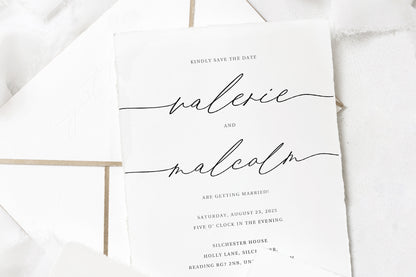 KINDLY SAVE THE DATE
valerie
AND
malcolm
ARE GETTING MARRIED!
SATURDAY, AUGUST 23, 2025
FIVE O' CLOCK IN THE EVENING
SILCHESTER HOUSE
HOLLY LANE, SILCHESTER,
READING RG7 2NB,